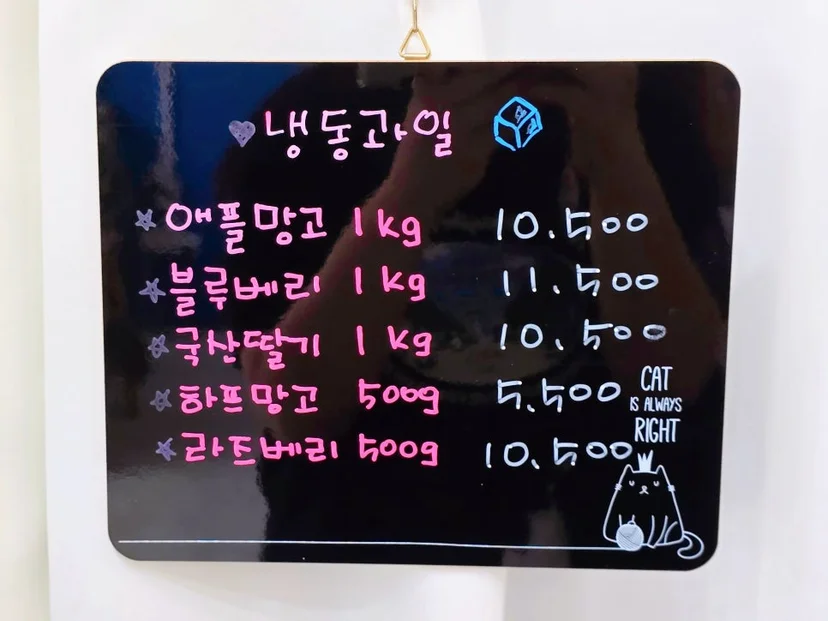 냉동과일
애플망고 1kg 10.500
블루베리 1kg 11.500
국산딸기 1kg 10.500
하프망고 500g 5.500
라즈베리 500g 10.500
CAT
IS ALWAYS
RIGHT